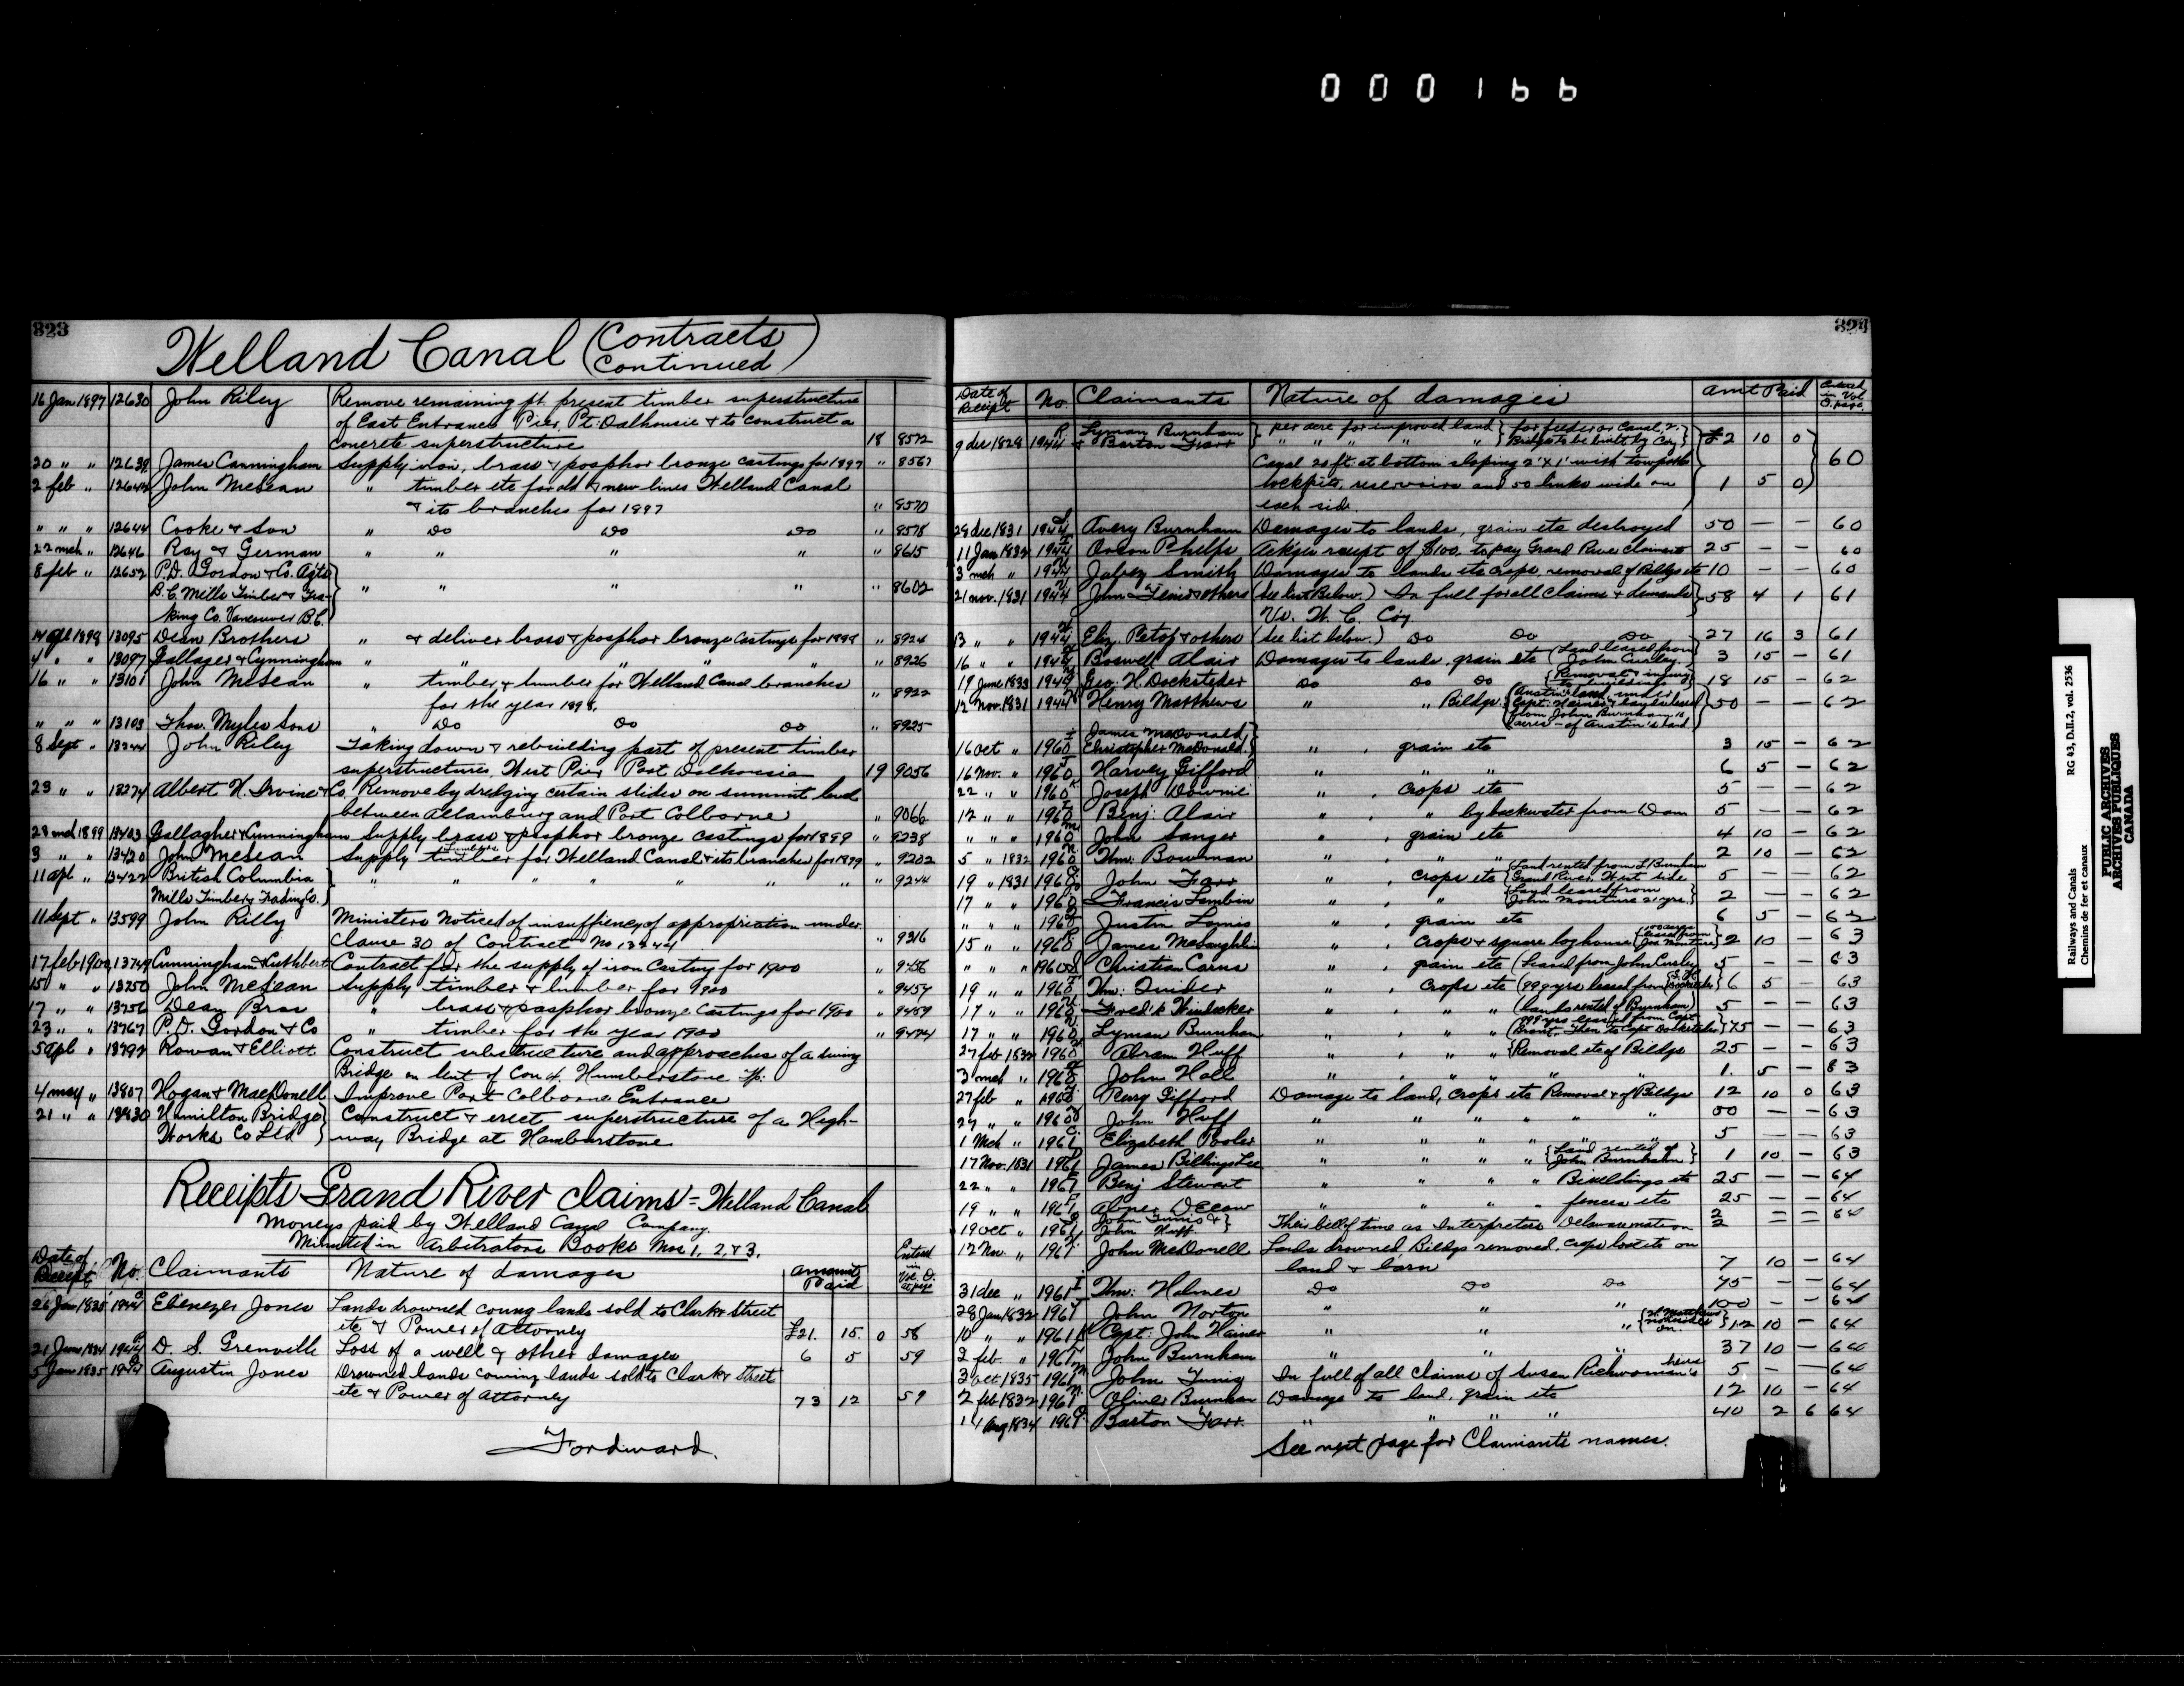 000166
823
Welland Canal (Contracts Continued)
16 Jan 1897 12630 John Riley Remove remaining pt. present timber superstructure
of East Entrance Pier, Pt: Dalhousie & to construct a
concrete superstructure 18 8572
20 " " 12639 James Cunningham Supply iron, brass & posphor bronze castings for 1897 " 8567
2 feb " John McLean " timber etc for old & new lines Welland Canal
& its branches for 1897 " 8570
" " " 12644 Cooke & Son " Do Do Do " 8578
22 mch " 12646 Ray & German " " " " " 8615
8 feb " 12652 P.D. Gordon & Co. Agts
B.C Mills Timber & Tra- " " " " " 8602
king Co. Vancouver B.C.
14 apl 1898 13095 Dean Brothers " & deliver brass & posphor bronze castings for 1898 " 8924
4 " " 13097 Gallager & Cynningham " " " " " " 8926
16 " " 13101 John McLean " timber & lumber for Welland Canal branches
for the year 1898. " 8922
" " " 13103 Thos. Myles Sons " Do Do Do " 8925
8 Sept " 13244 John Riley Taking down & rebuilding part of present timber
superstructures, West Pier Port Dalhousie 19 9056
23 " " 13274 Albert H. Irvine & Co. Remove by dredging certain slides on summit level
between Allamburg and Port Colborne " 9066
28 mch 1899 13403 Gallagher & Cunningham Supply brass & posphor bronze castings for 1899 " 9238
3 " " 13420 John McLean Supply timber for Welland Canal & its branches for 1899 " 9202
11 apl " 13422 British Columbia " " " " " " " 9244
Mills Timber & Trading Co.
11 Sept " 13599 John Rilly Ministers Notice of insufficiency of appropriation under
Clause 30 of Contract No 13244 " 9316
17 feb 1900 13749 Cunningham & Cuthbert Contract for the supply of iron Casting for 1900 " 9456
15 " " 13750 John McLean Supply timber & lumber for 1900 " 9457
17 " " 13756 Dean Bros " brass & posphor bronze Castings for 1900 " 9459
23 " " 13767 P.D. Gordon & Co " timber for the year 1900 " 9474
5 apl " 13792 Rowan & Elliott Construct substructure and approaches of a swing
Bridge on lent of Con 4. Humberstone Tp.
4 may " 13807 Hogan & MacDonell Improve Port Colborne Entrance
21 " " 13830 Hamilton Bridge Construct & erect superstructure of a High-
Works Co Ltd way Bridge at Humberstone
Receipts Grand River Claims = Welland Canal
Moneys paid by Welland Canal Company.
Minuted in Arbitrators Books Nos 1, 2, & 3.
Date of Receipt No. Claimants Nature of damages Amount Paid Entered in Vol. O. at page
26 Jan 1835 1944 Ebenezer Jones Lands drowned coming lands sold to Clark & Street
etc & Power of Attorney £21. 15. 0 58
21 June 1834 1944 D. S. Grenville Loss of a well & other damages 6 5 59
5 Jan 1835 1944 Augustin Jones Drowned lands coming lands sold to Clark & Street
etc & Power of Attorney 73 12 59
Fordward.
824
Date of Receipt No. Claimants Nature of damages amt Paid Entered in Vol O. page
9 dec 1828 1944 R Lyman Burnham per acre for improved land for feeder or Canal, 2, £2 10 0
& Barton Farr " " " " " Bridges to be built by Coy
Canal 20 ft: at bottom sloping 2' x 1' with towpath 60
lockpits, reservoirs and 50 links wide on 1 5 0
each side.
28 dec 1831 1944 S Avery Burnham Damages to lands, grain etc destroyed 50 — — 60
11 Jan 1832 1944 Orson Phelps Ack'ges receipt of $100. to pay Grand River claimants 25 — — 60
3 mch " 1944 Jabez Smith Damages to lands etc crops, removal of Bildgs etc 10 — — 60
21 nov. 1831 1944 & others (See list Below.) In full for all claims & demands 58 4 1 61
Vs. W. C. Coy.
13 " " 1944 Eliz. & others (See list below.) Do Do Do 27 16 3 61
16 " " 1944 Boswell Alair Damages to lands, grain etc (Land leased from John Curley.) 3 15 — 61
19 June 1833 1944 Geo. H. Docksteder Do Do Do Removal & injury to buildings 18 15 — 62
12 Nov. 1831 1944 Henry Matthews " " Bildgs. Austin's land, under Capt. Haines & buyer leased from John Burnham 12 acres — of Austin's land 50 — — 62
16 oct " 1960 James McDonald, Christopher McDonald. " " grain etc 3 15 — 62
16 Nov. " 1960 Harvey Gifford " " " 6 5 — 62
22 " " 1960 Joseph Downie " " crops etc 5 — — 62
12 " " 1960 Benj: Alair " " " by backwater from Dam 5 — — 62
" " " 1960 John Sanger " " grain etc 4 10 — 62
5 " 1832 1960 Thos: Bowman " " " " 2 10 — 62
19 " 1831 1960 John Farr " " crops etc Land rented from L Burnham Grand River West side 5 — — 62
17 " " 1960 Francis Lambin " " " Land leased from John Monture 21 yrs. 2 — — 62
" " " 1960 Justin " " grain etc 6 5 — 62
15 " " 1960 James McLaughlin " " crops & square log house 100 acres leased from Jos Monture 2 10 — 63
" " " 1960 Christian Carns " " grain etc (Leased from John Curley 5 — — 63
19 " " 1960 " " crops etc (999 yrs leased from 6 5 — 63
17 " " 1960 Fred'k Windecker " " " " (lands rented of Burnham) 5 — — 63
17 " " 1960 Lyman Burnham " " " " (999 yrs leased from Capt. Brant. Then to Capt Docksteder 75 — — 63
27 feb 1832 1960 Abram Huff " " " " Removal etc of Bildgs 25 — — 63
3 mch " 1960 John Hall " " " " " " 1. 5 — 83
27 feb " 1960 Perry Gifford Damage to land, crops etc Removal & of Bildgs 12 10 0 63
27 " " 1960 John Huff " " " " " 50 — — 63
1 Mch " 1961 Elizabeth Pooler " " " " " " 5 — — 63
17 Nov. 1831 1961 James Billings " " " " Land rented of John Burnham 1 10 — 63
22 " " 1961 Benj Stewart " " " " Buildings etc 25 — — 64
19 " " 1961 Abner DeCow " " " " fences etc 25 — — 64
19 oct " 1961 John & John Huff Their bill of time as Interpreters Delaware nation 2 2 = = 64
12 Nov. " 1961 John McDonell Lands drowned, Bildgs removed, crops lost etc on
land & barn 7 10 — 64
31 dec " 1961 Thos: Holmes Do Do Do 45 — — 64
28 Jan 1832 1961 John Norton " " " 100 — — 64
10 " " 1961 K Capt: John Haines " " " 12 10 — 64
2 feb " 1961 John Burnham " " " 37 10 — 64
3 oct. 1835 1961 John In full of all Claims of Susan Richwoman's heirs 5 — — 64
2 feb 1832 1961 Oliver Burnham Damage to land, grain etc 12 10 — 64
14 Aug 1834 1961 Barton Farr. " " " " 40 2 6 64
See next page for Claimants names.
Railways and Canals
Chemins de fer et canaux
RG 43, D.III.2, vol. 2536
PUBLIC ARCHIVES
ARCHIVES PUBLIQUES
CANADA